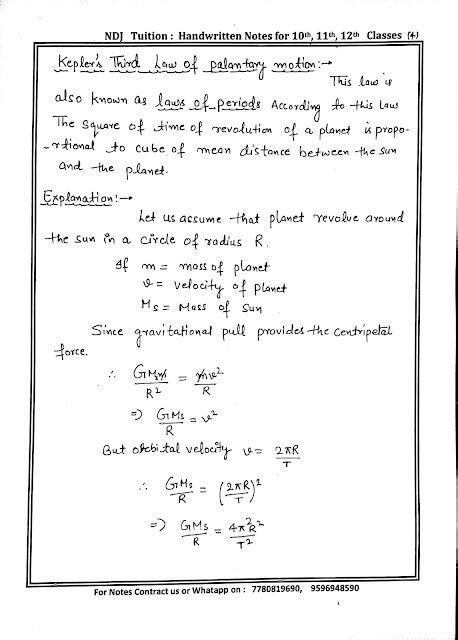 NDJ Tuition : Handwritten Notes for 10th, 11th, 12th Classes (4)
Kepler's Third Law of palantary motion:→
This law is
also known as laws of periods According to this law
The Square of time of revolution of a planet is propo-
-rtional to cube of mean distance between the sun
and the planet.
Explanation:→
Let us assume that planet revolve around
the sun in a circle of radius R.
If m = mass of planet
v = velocity of planet
Ms = Mass of Sun
Since gravitational pull provides the centripetal
force.
∴ GMsm/R² = mv²/R
⇒ GMs/R = v²
But orbital velocity v = 2πR/T
∴ GMs/R = (2πR/T)²
⇒ GMs/R = 4π²R²/T²
For Notes Contract us or Whatapp on : 7780819690, 9596948590